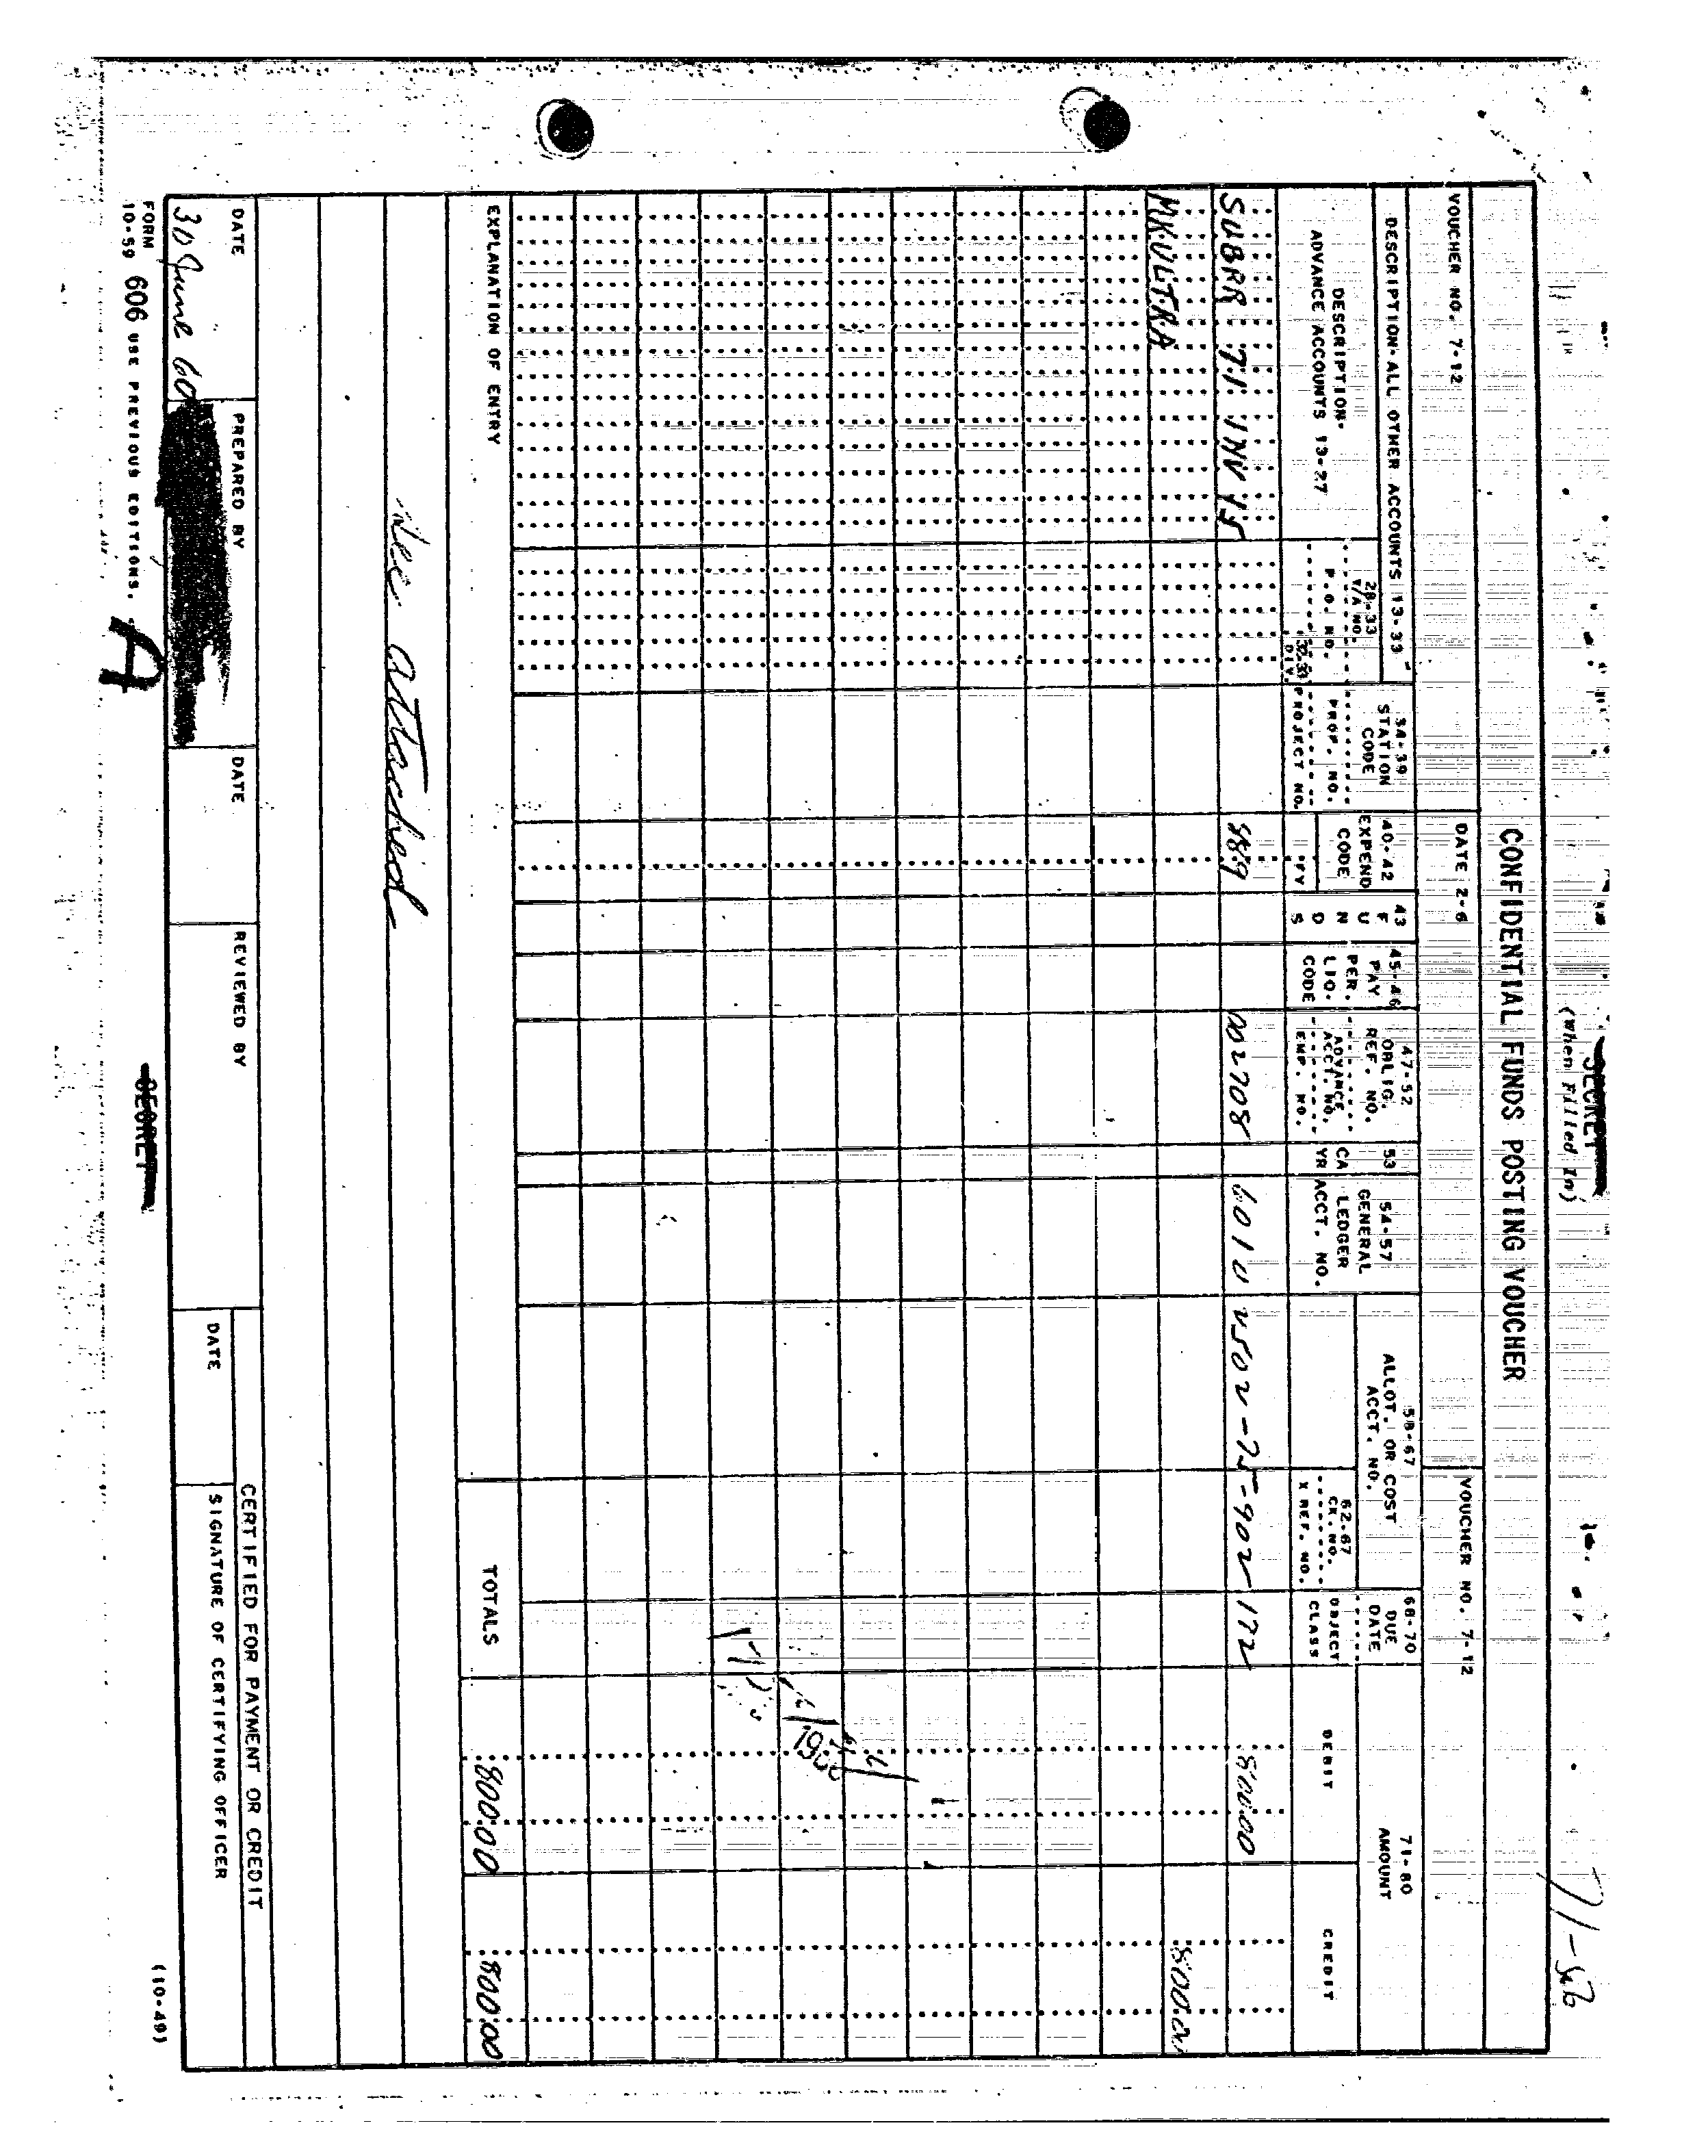 SECRET
(When Filled In)
71-56
CONFIDENTIAL FUNDS POSTING VOUCHER
VOUCHER NO. 7-12
DATE 2-6
VOUCHER NO. 7-12
DESCRIPTION-ALL OTHER ACCOUNTS 13-33
DESCRIPTION-
ADVANCE ACCOUNTS 13-27
28-33
T/A NO.
P.O. NO.
32-33
DIV.
34-39
STATION
CODE
PROP. NO.
PROJECT NO.
40-42
EXPEND
CODE
FY
43
F
U
N
D
S
45-46
PAY
PER.
LIQ.
CODE
47-52
OBLIG.
REF. NO.
ADVANCE
ACCT. NO.
EMP. NO.
53
CA
YR
54-57
GENERAL
LEDGER
ACCT. NO.
58-67
ALLOT. OR COST
ACCT. NO.
62-67
CK. NO.
X REF. NO.
68-70
DUE
DATE
OBJECT
CLASS
71-80
AMOUNT
DEBIT
CREDIT
SUBPR 71 INV 15 989 002708 6010 2502-25-902-172 800.00
MKULTRA 800.00
EXPLANATION OF ENTRY
TOTALS 800.00 800.00
See attached
CERTIFIED FOR PAYMENT OR CREDIT
DATE
PREPARED BY
DATE
REVIEWED BY
DATE
SIGNATURE OF CERTIFYING OFFICER
30 June 60
A
FORM
10-59 606 USE PREVIOUS EDITIONS.
SECRET
(10-49)